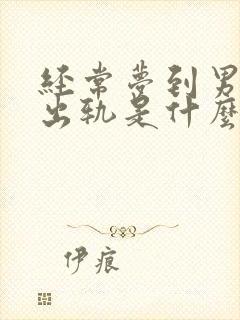 經常夢到男
出轨是什麽
伊痕